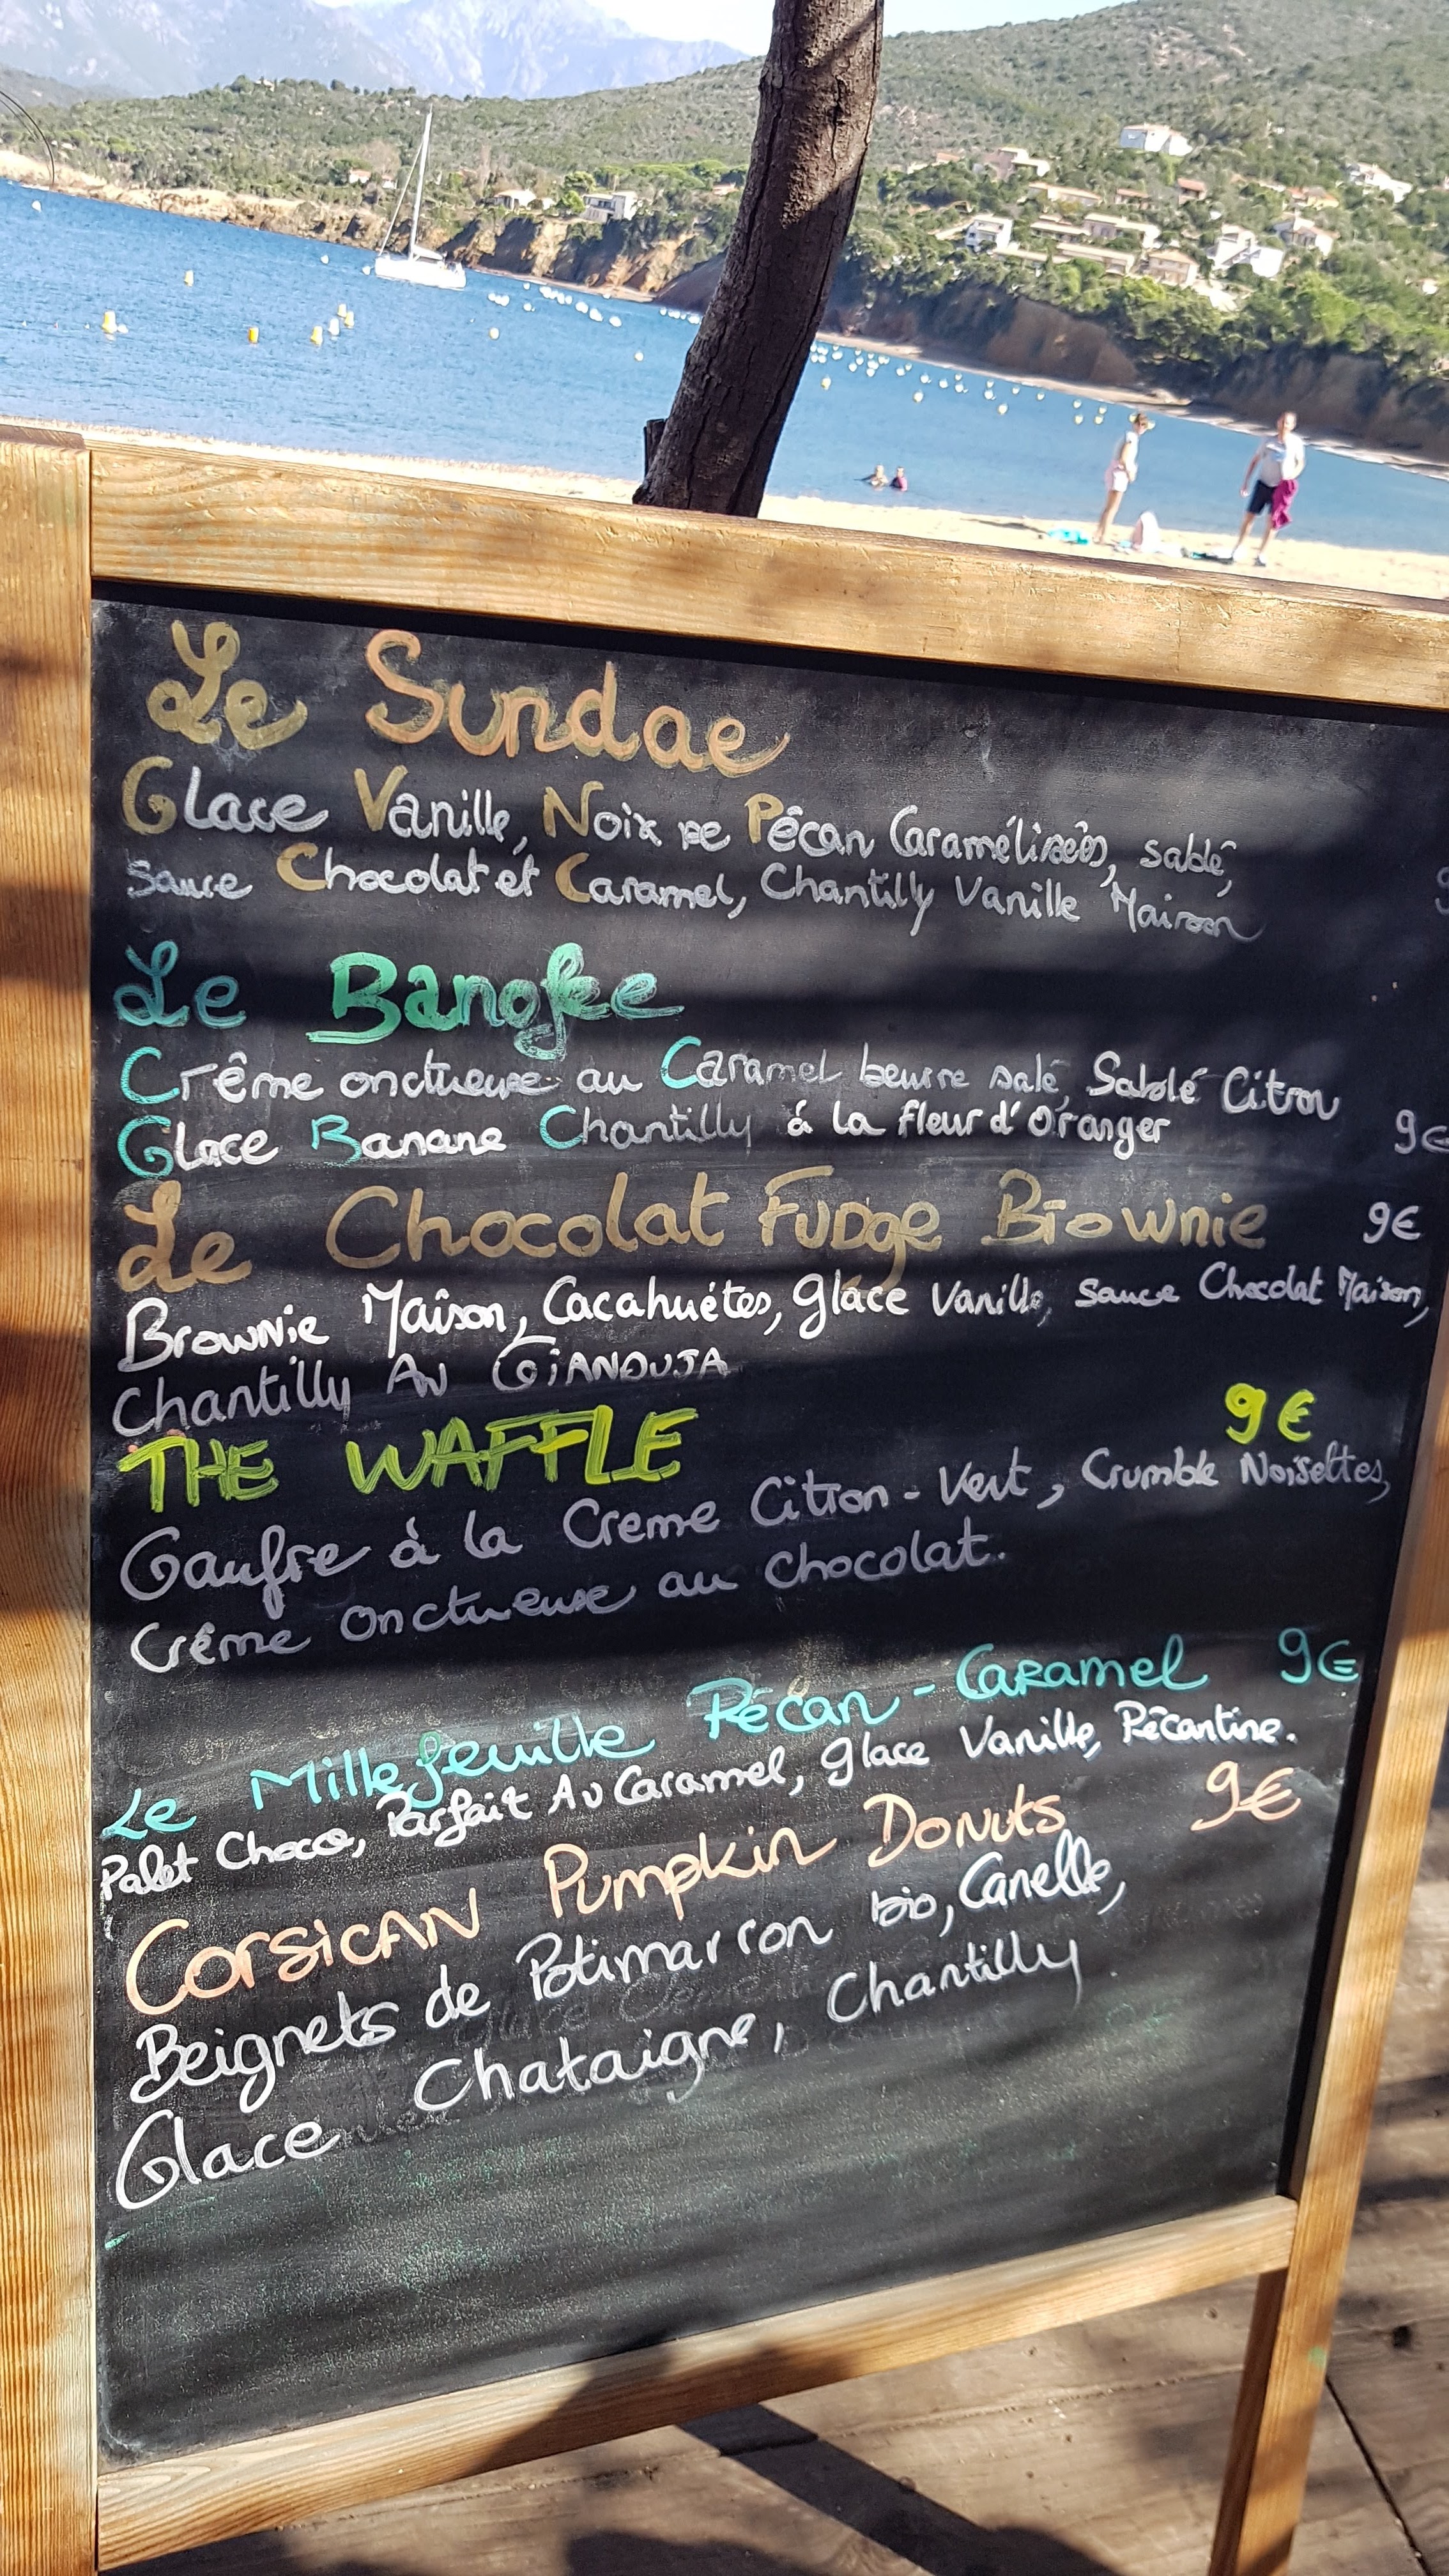 Le Sundae
Glace Vanille, Noix de Pécan Caramélisées, sablé,
sauce Chocolat et Caramel, Chantilly Vanille Maison
Le Banofee
Crême onctueuse au Caramel beurre salé, Sablé Citron
Glace Banane Chantilly à la fleur d'Oranger 9€
Le Chocolat Fudge Brownie 9€
Brownie Maison, Cacahuétes, glace Vanille, sauce Chocolat Maison,
Chantilly Au GiANDUJA
THE WAFFLE 9€
Gaufre à la Creme Citron-Vert, Crumble Noisettes,
Créme Onctueuse au chocolat.
Le Millefeuille Pécan-Caramel 9€
Palet Choco, Parfait Au Caramel, glace Vanille, Pécantine.
CorsicAN Pumpkin Donuts 9€
Beignets de Potimarron bio, Canelle,
Glace Chataigne, Chantilly